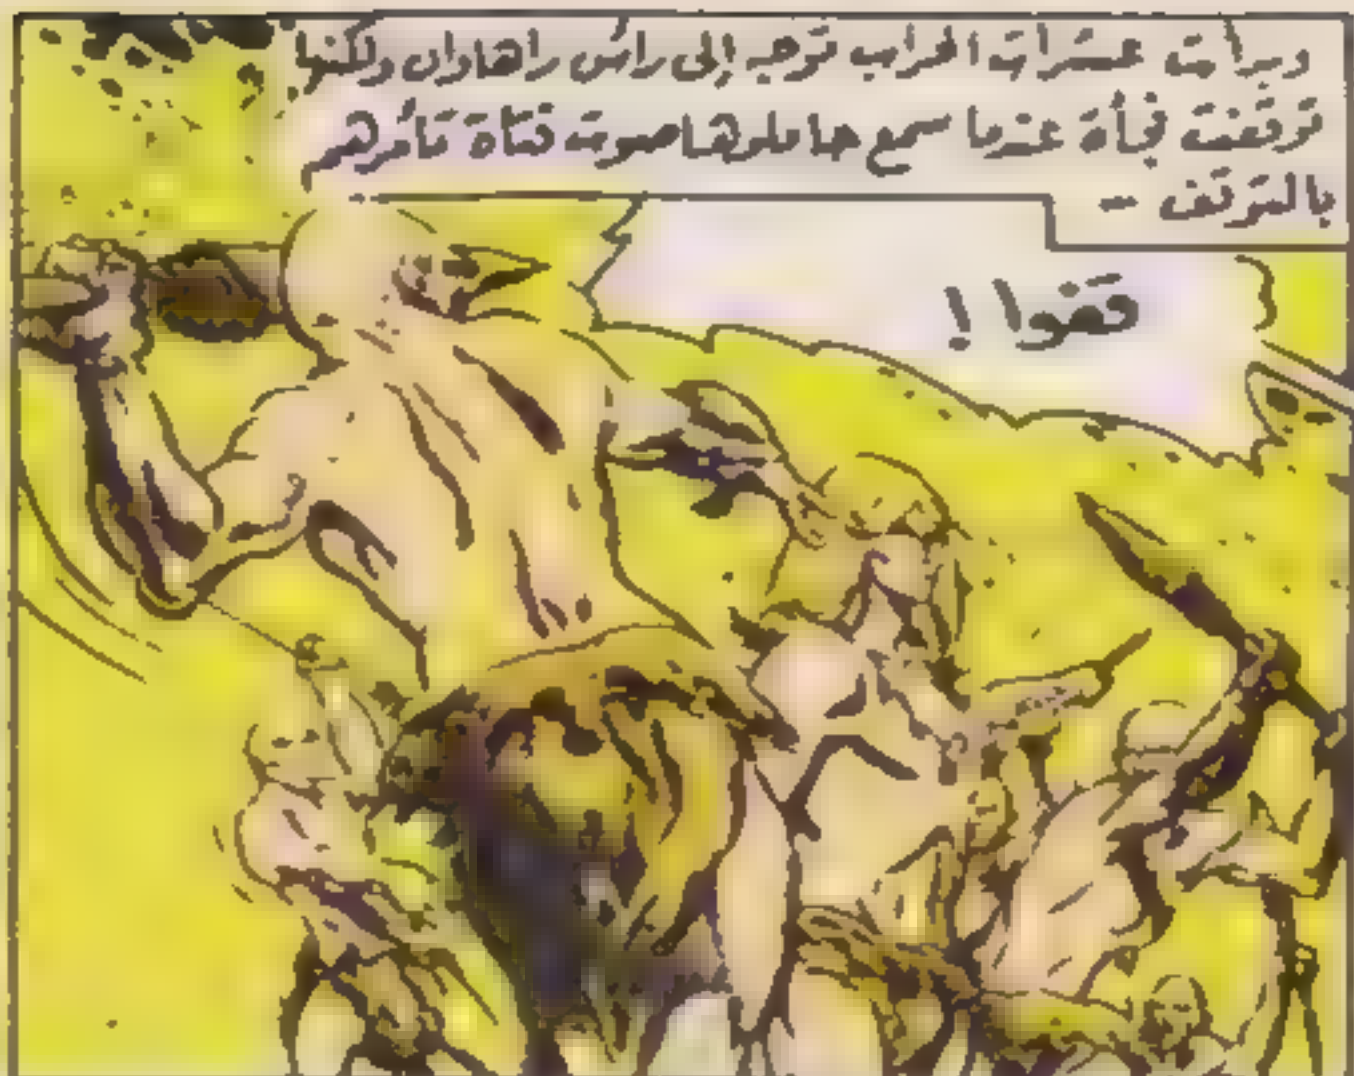 وبدأت عشرات الحراب توجه إلى رأس راهاوان ولكنها
توقفت فجأة عندما سمع حاملوها صوت فتاة تأمرهم
بالتوقف -
قفوا !